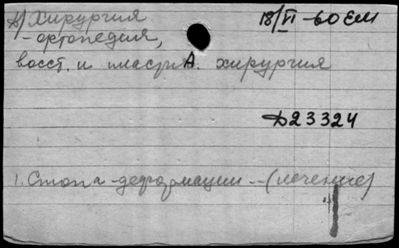 А) Хирургия 18/VI-60 ЕМ
- ортопедия,
восст. и пластА. хирургия
Д23324
1. Стопа - деформации - (лечение)